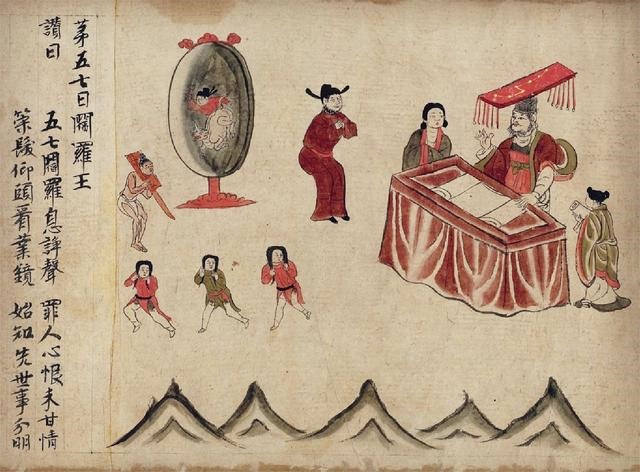 苐五七日閻羅王
讚曰 五七閻羅息諍聲 罪人心恨未甘情
策髮仰頭看業鏡 始知先世事分明